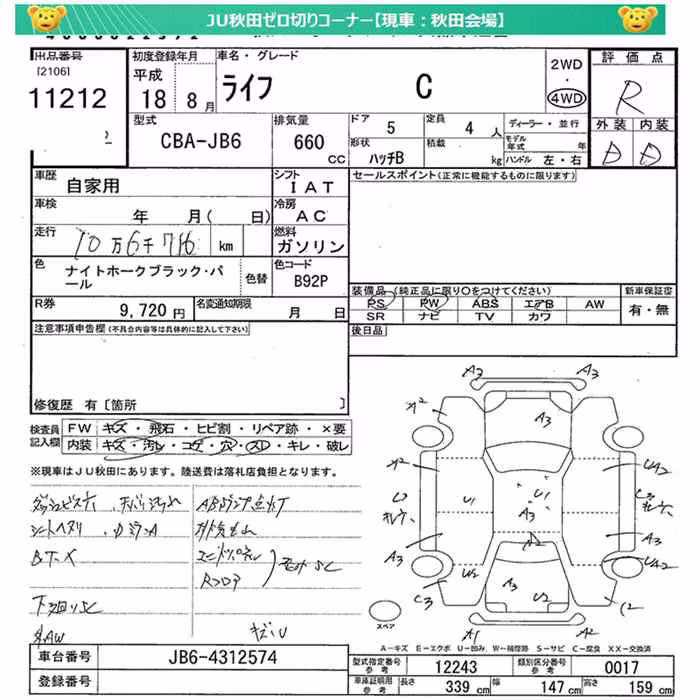 JU秋田ゼロ切りコーナー【現車：秋田会場】
出品番号
[2106]
11212
初度登録年月
平成
18 8月
車名・グレード
ライフ C
2WD
・
4WD
評価点
R
型式
CBA-JB6
排気量
660
CC
ドア 5
定員 4 人
ディーラー・並行
形状 ハッチB
積載 kg
モデル年式 年
ハンドル 左・右
外装 内装
D D
車歴
自家用
シフト
IAT
セールスポイント(正常に機能するものに限ります)
車検
年 月( 日)
冷房
AC
走行
10万6千716 km
燃料
ガソリン
色
ナイトホークブラック・パール
色替
色コード
B92P
装備品(純正品に限り〇をつけてください)
新車保証書
PS PW ABS エアB AW
有・無
SR ナビ TV カワ
R券
9,720円
名変通知期限
月 日
後日品
注意事項申告欄(不具合内容等は具体的に記入して下さい)
修復歴 有 [箇所 ]
検査員記入欄
FW キズ・飛石・ヒビ割・リペア跡・×要
内装 キズ・汚レ・コゲ・穴・スレ・キレ・破レ
※現車はJU秋田にあります。陸送費は落札店負担となります。
ダッシュビス穴
シートヘタリ
ABランプ点灯
下廻りSC
キズU
A3
A3
A2
A2
U1
U1
A3
A2
UA2
A3
A3
UA2
W2
C3
A3
U2
C2
A1
A2
スペア
A－キズ E－エクボ U－凹み W－補修跡 S－サビ C－腐食 XX－交換済
車台番号
JB6-4312574
型式指定番号
参考
12243
類別区分番号
参考
0017
登録番号
車庫証明用
参考
長さ 339 cm
幅 147 cm
高さ 159 cm